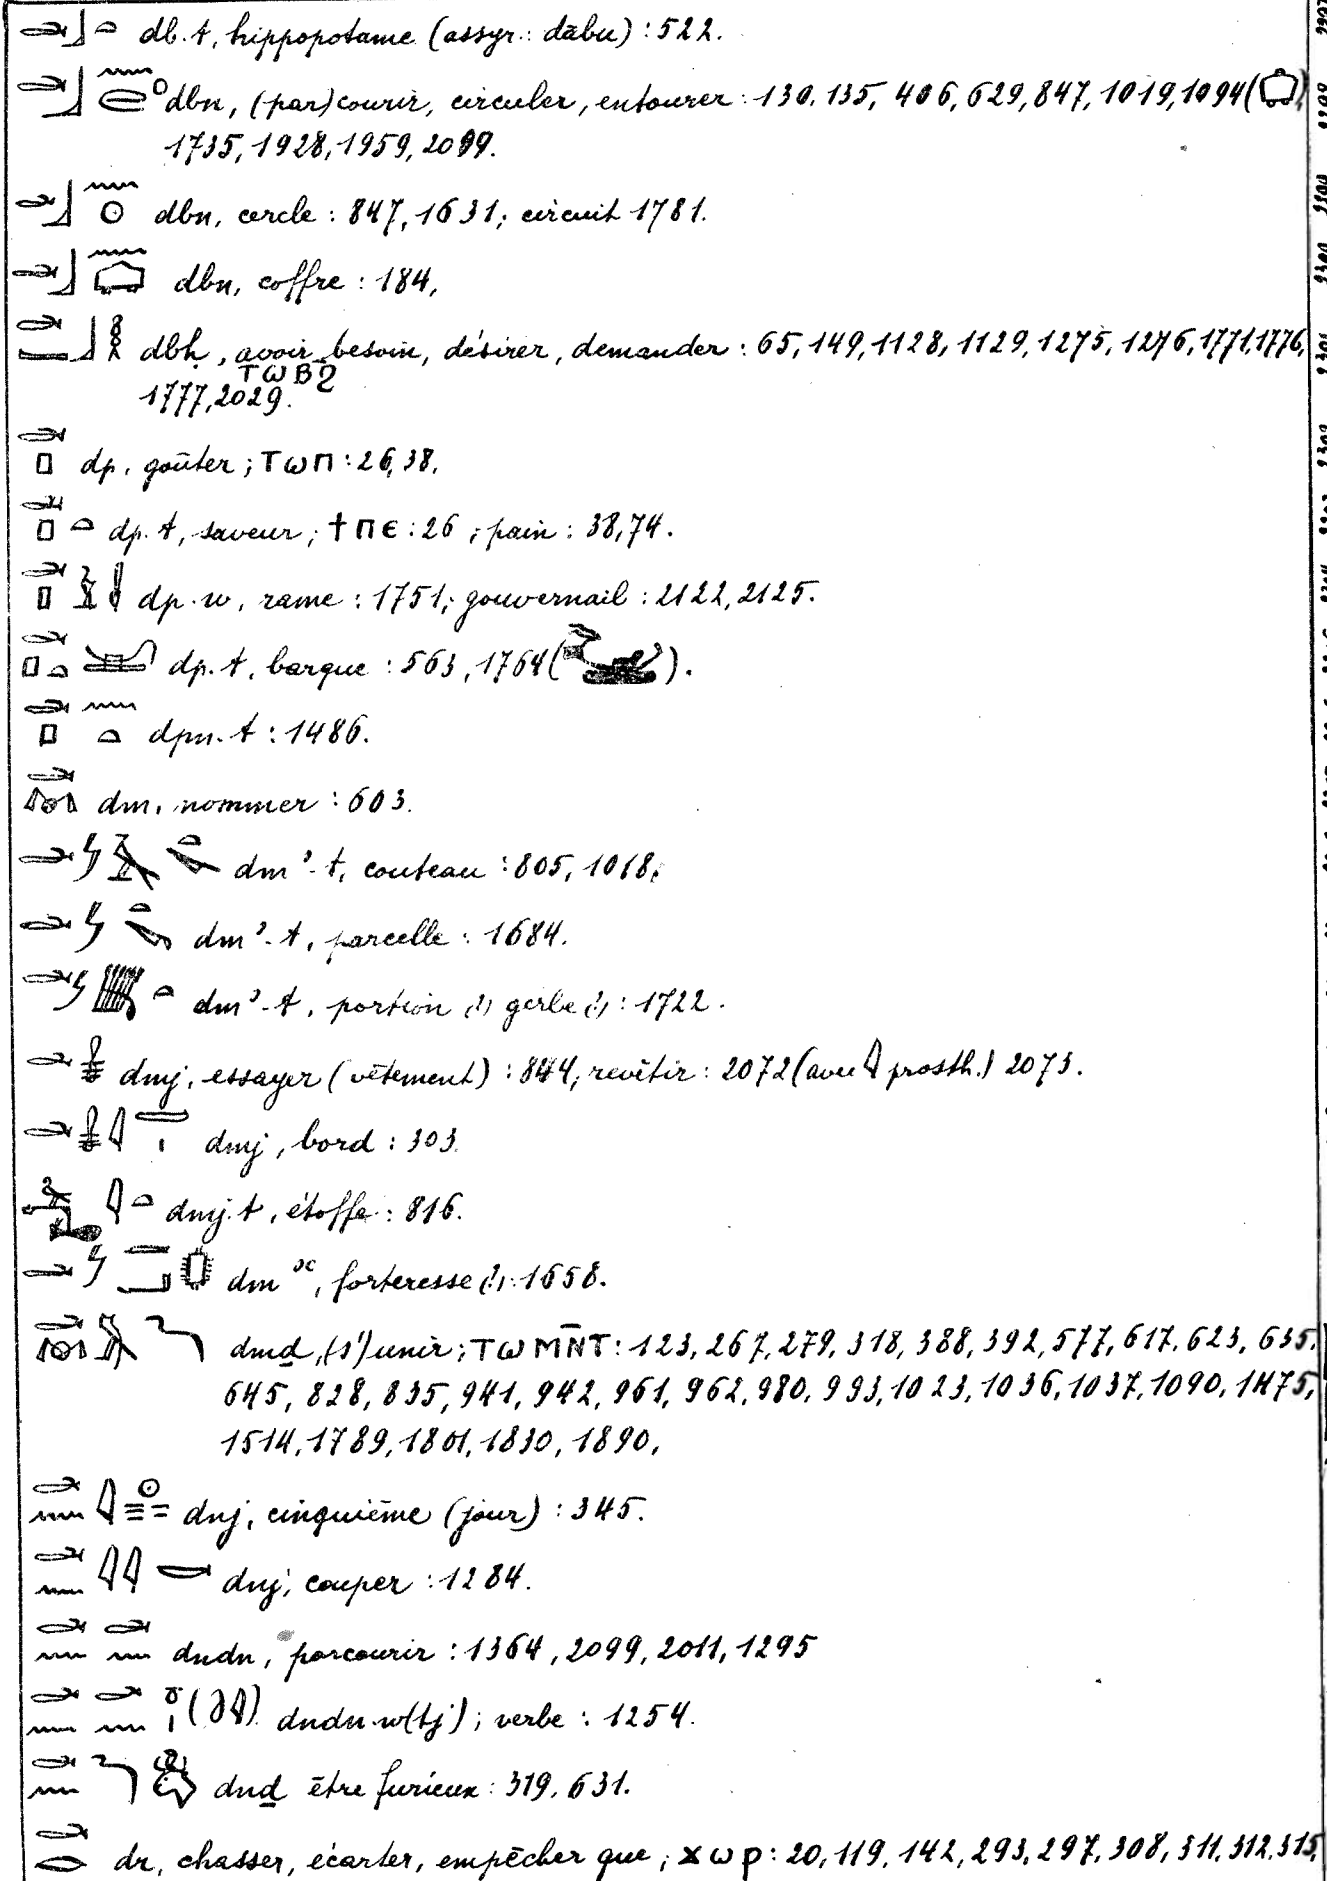 db.t, hippopotame (assyr.: dābu) : 522.
dbn, (par)courir, circuler, entourer : 130. 135, 406, 629, 847, 1019, 1094( )
1735, 1928, 1959, 2099.
dbn, cercle : 847, 1631; circuit 1781.
dbn, coffre : 184,
dbḥ, avoir besoin, désirer, demander : 65, 149, 1128, 1129, 1275, 1276, 1771, 1776,
ⲧⲱⲃϩ
1777, 2029.
dp. goûter ; ⲧⲱⲡ : 26, 38.
dp.t, saveur ; ϯⲡⲉ : 26 ; pain : 38, 74.
dp.w, rame : 1751; gouvernail : 2122, 2125.
dp.t, barque : 563, 1764( ).
dpn.t : 1486.
dm, nommer : 603.
dmꜣ.t, couteau : 805, 1018,
dmꜣ.t, parcelle : 1684.
dmꜣ.t, portion (?) gerbe (?) : 1722.
dmj, essayer (vêtement) : 844, revêtir : 2072 (avec prosth.) 2073.
dmj, bord : 303.
dmj.t, étoffe : 816.
dmꜣꜥ, forteresse (?) : 1658.
dmḏ, (s')unir ; ⲧⲱⲙⲛ̄ⲧ : 123, 267, 279, 318, 388, 392, 577, 617. 623, 635.
645, 828, 835, 941, 942, 961, 962, 980, 993, 1023, 1036, 1037, 1090, 1475,
1514, 1789, 1801, 1830, 1890,
dnj, cinquième (jour) : 345.
dnj, couper : 1284.
dndn, parcourir : 1364, 2099, 2011, 1295
dndn.w(tj) ; verbe : 1254.
dnḏ être furieux : 319, 631.
dr, chasser, écarter, empêcher que ; ϫⲱⲣ : 20, 119, 142, 293, 297, 308, 311, 312, 315,